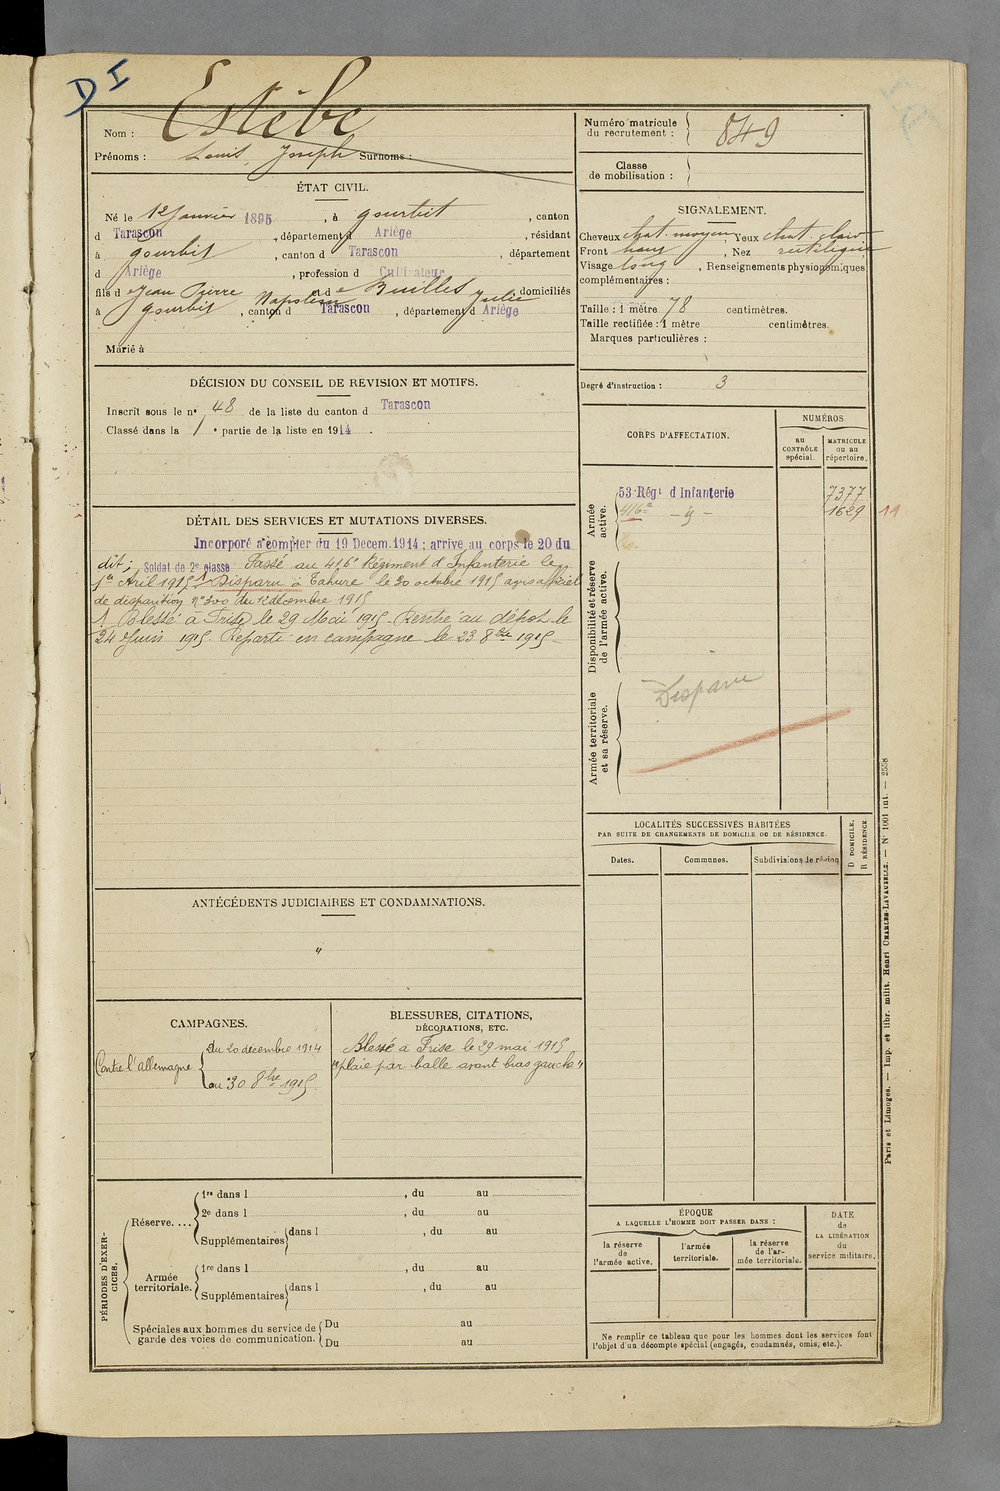 D I
Nom : Estèbe
Prénoms : Louis, Joseph Surnoms :
Numéro matricule
du recrutement : 849
Classe
de mobilisation :
ÉTAT CIVIL.
Né le 12 Janvier 1895, à Gourbit, canton
d Tarascon, département d Ariège, résidant
à Gourbit, canton d Tarascon, département
d Ariège, profession d Cultivateur
fils d e Jean Pierre Napoléon et d e Builles Julie domiciliés
à Gourbit, canton d Tarascon, département d Ariège
Marié à
SIGNALEMENT.
Cheveux chat. moyen, Yeux chat. clair
Front haut, Nez rectiligne
Visage long, Renseignements physionomiques
complémentaires :
Taille : 1 mètre 78 centimètres.
Taille rectifiée : 1 mètre centimètres.
Marques particulières :
Degré d'instruction : 3
DÉCISION DU CONSEIL DE REVISION ET MOTIFS.
Inscrit sous le n° 48 de la liste du canton d Tarascon
Classé dans la 1e partie de la liste en 1914.
CORPS D'AFFECTATION.
NUMÉROS
au
CONTRÔLE
spécial.
MATRICULE
ou au
répertoire.
Armée
active.
53e Régt d'Infanterie 7377
416e - 1629 11
Disponibilité et réserve
de l'armée active.
Armée territoriale
et sa réserve.
Disparu
DÉTAIL DES SERVICES ET MUTATIONS DIVERSES.
Incorporé à compter du 19 Decem. 1914 ; arrivé au corps le 20 du
dit ; Soldat de 2e classe Passé au 416e Régiment d'Infanterie le
1er Avril 1915 1 Disparu à Tahure le 30 octobre 1915 avis officiel
de disparition n° 300 du 12 décembre 1915
1 Blessé à Frise le 29 Mai 1915 - Rentré au dépôt le
24 Juin 1915 Reparti en campagne le 23 8bre 1915
LOCALITÉS SUCCESSIVES HABITÉES
PAR SUITE DE CHANGEMENTS DE DOMICILE OU DE RÉSIDENCE.
Dates.
Communes.
Subdivisions de région
D DOMICILE.
R RÉSIDENCE.
ANTÉCÉDENTS JUDICIAIRES ET CONDAMNATIONS.
"
CAMPAGNES.
Contre l'allemagne
Du 20 décembre 1914
au 30 8bre 1915.
BLESSURES, CITATIONS,
DÉCORATIONS, ETC.
Blessé à Frise le 29 mai 1915
"plaie par balle avant bras gauche"
PÉRIODES D'EXER-
CICES.
Réserve....
1re dans l , du au
2e dans l , du au
Supplémentaires dans l , du au
Armée
territoriale.
1re dans l , du au
Supplémentaires dans l , du au
Spéciales aux hommes du service de
garde des voies de communication.
Du au
Du au
ÉPOQUE
A LAQUELLE L'HOMME DOIT PASSER DANS :
la réserve
de
l'armée active.
l'armée
territoriale.
la réserve
de l'ar-
mée territoriale.
DATE
de
LA LIBÉRATION
du
service militaire.
Ne remplir ce tableau que pour les hommes dont les services font
l'objet d'un décompte spécial (engagés, condamnés, omis, etc.).
Paris et Limoges. — Imp. et libr. milit. Henri CHARLES-LAVAUZELLE. — N° 1001 int. — 2558